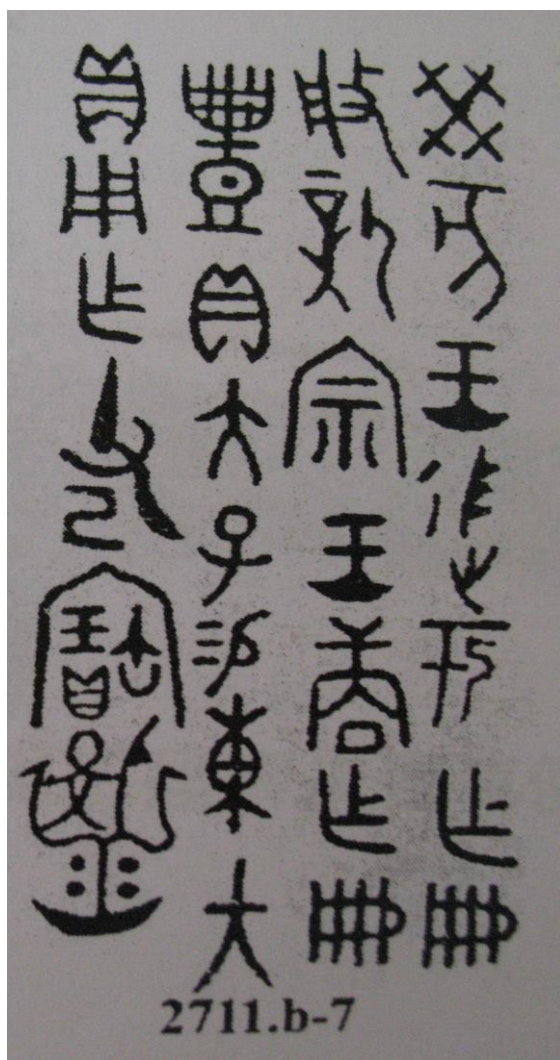 癸亥王于乍册
般新宗王商乍册
豊貝大子易東大
貝用乍父己寶
2711.b-7